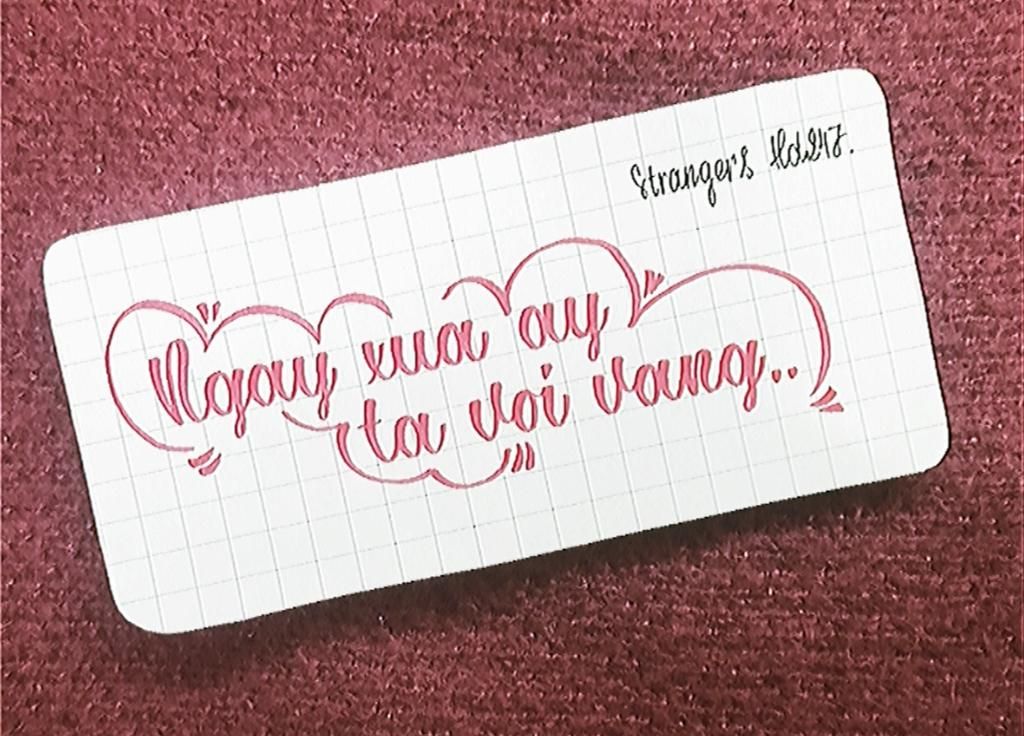 Strangers Hd247.
Ngay xua ay
ta voi vang..